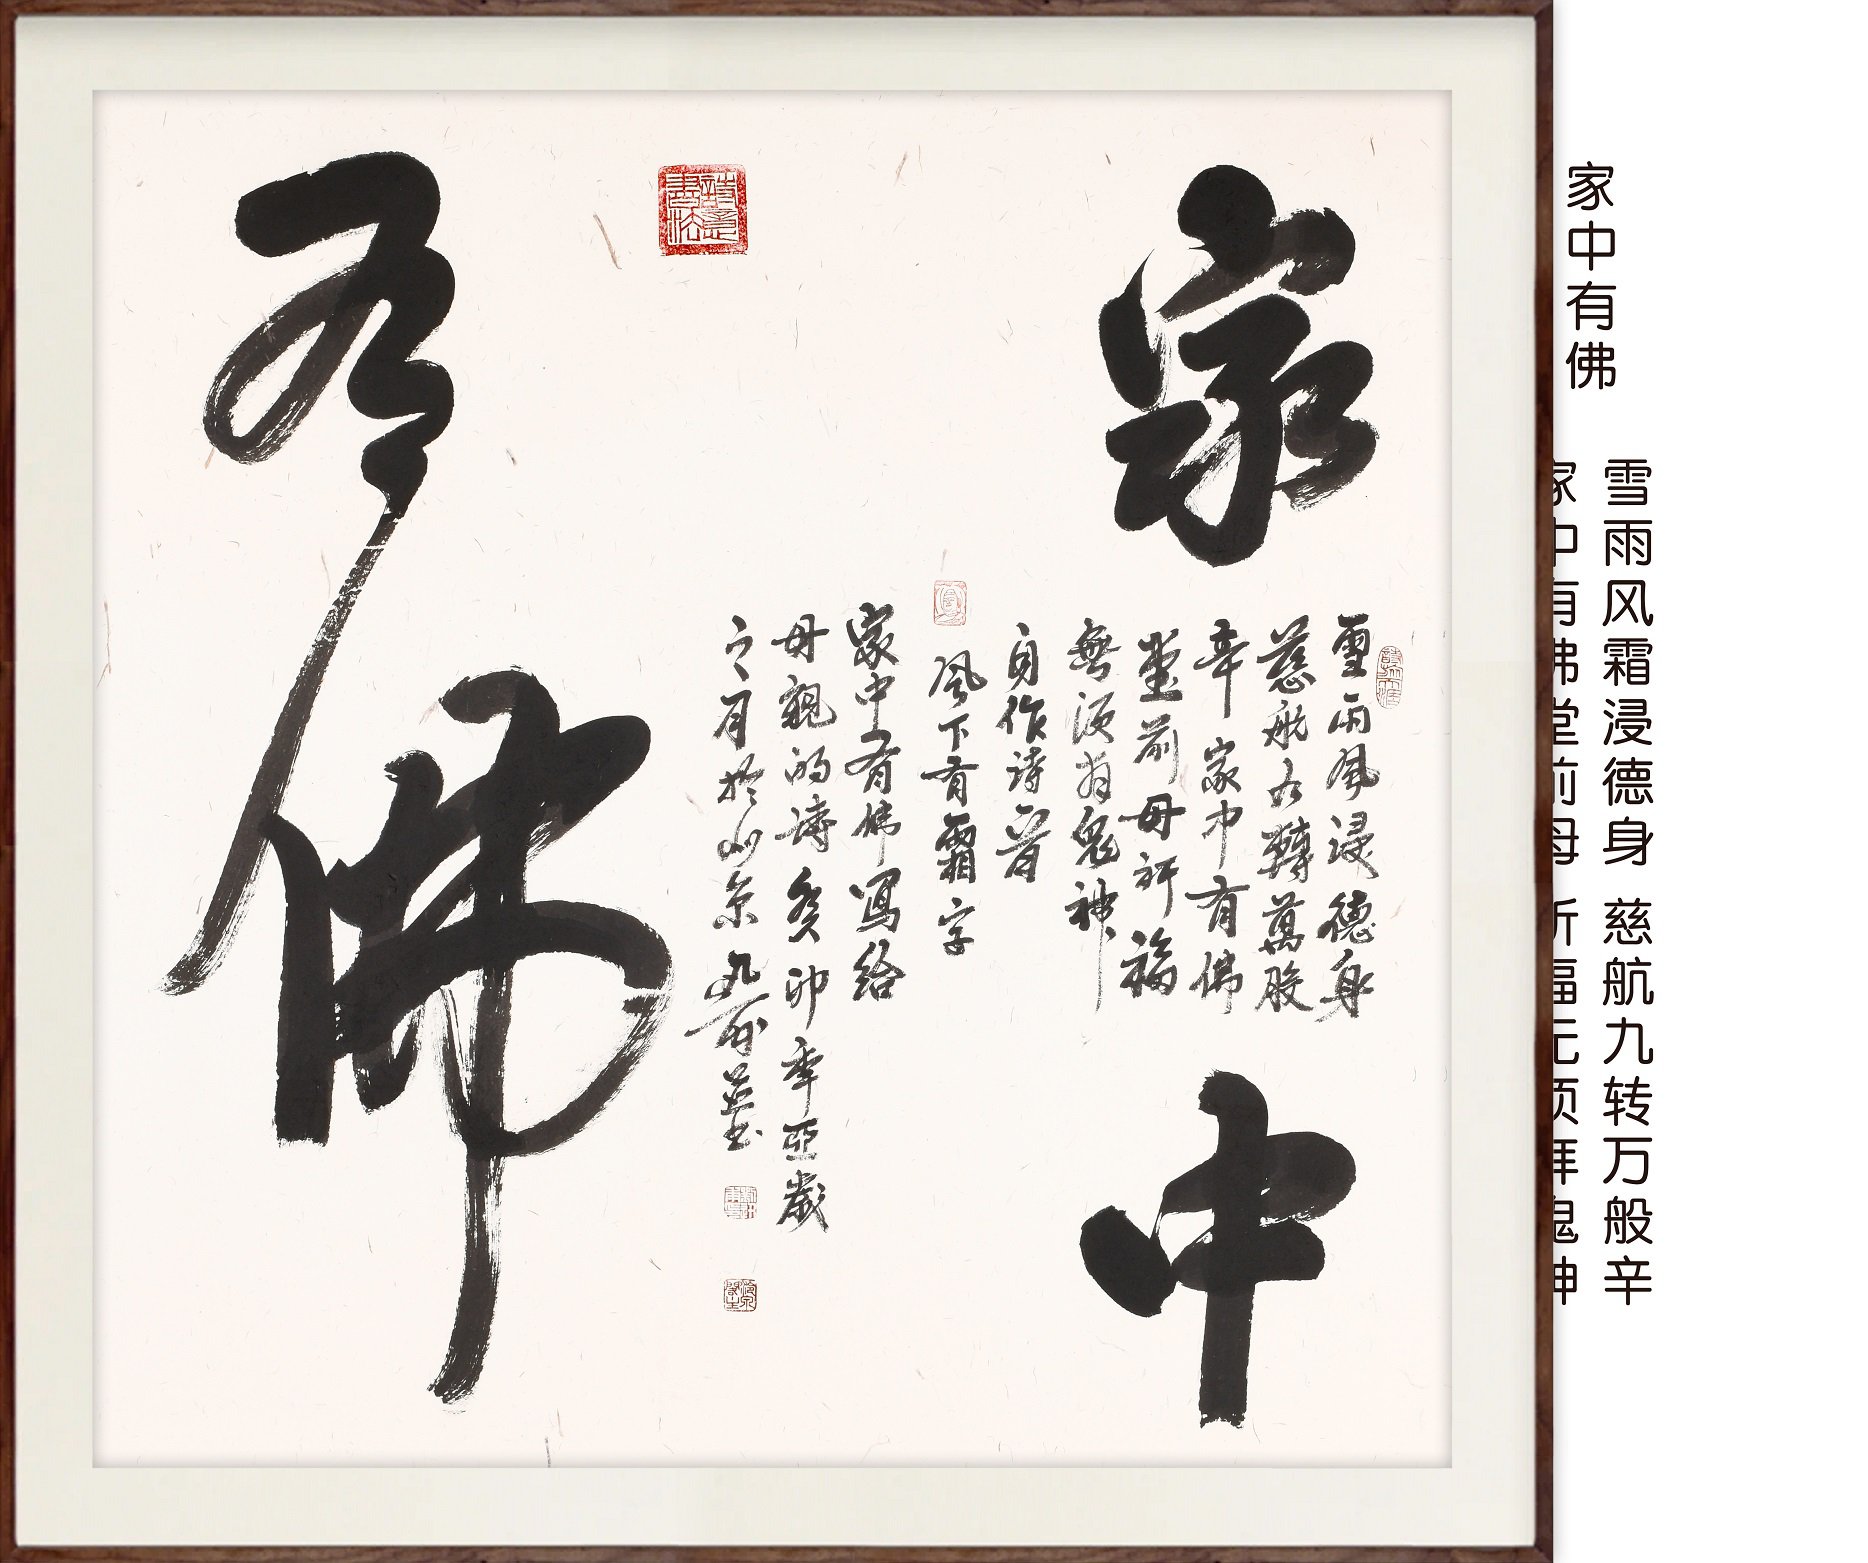 家中
有佛
雪雨風浸德身
慈航九轉萬般
辛家中有佛
堂前母祈福
無須拜鬼神
自作詩一首
風下有霜字
家中有佛寫給
母親的詩癸卯年亞歲
之月於北京
家中有佛
雪雨风霜浸德身 慈航九转万般辛
家中有佛堂前母 祈福无须拜鬼神